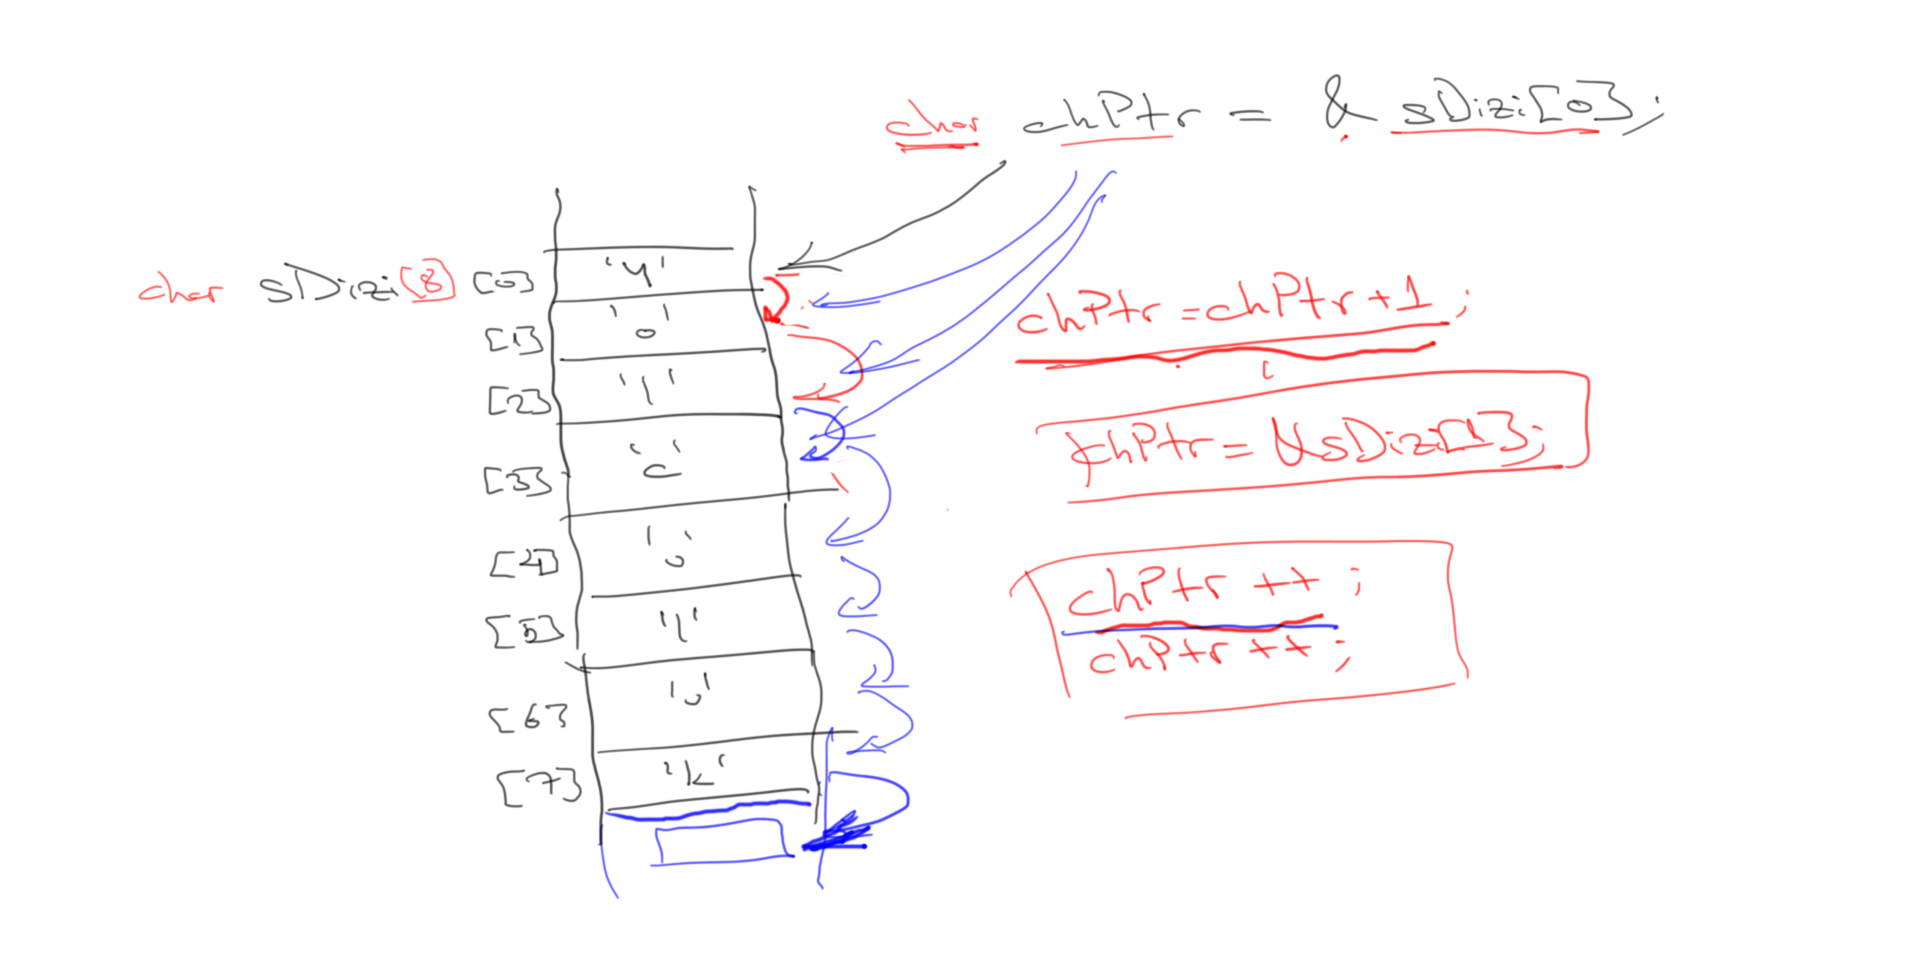 char chPtr = & sDizi[0];
char sDizi[8] [0] 'y'
[1] 'o'
[2] 'l'
[3] 'c'
[4] 'u'
[5] 'l'
[6] 'u'
[7] 'k'
chPtr = chPtr + 1 ;
chPtr = &sDizi[1];
chPtr ++ ;
chPtr ++ ;